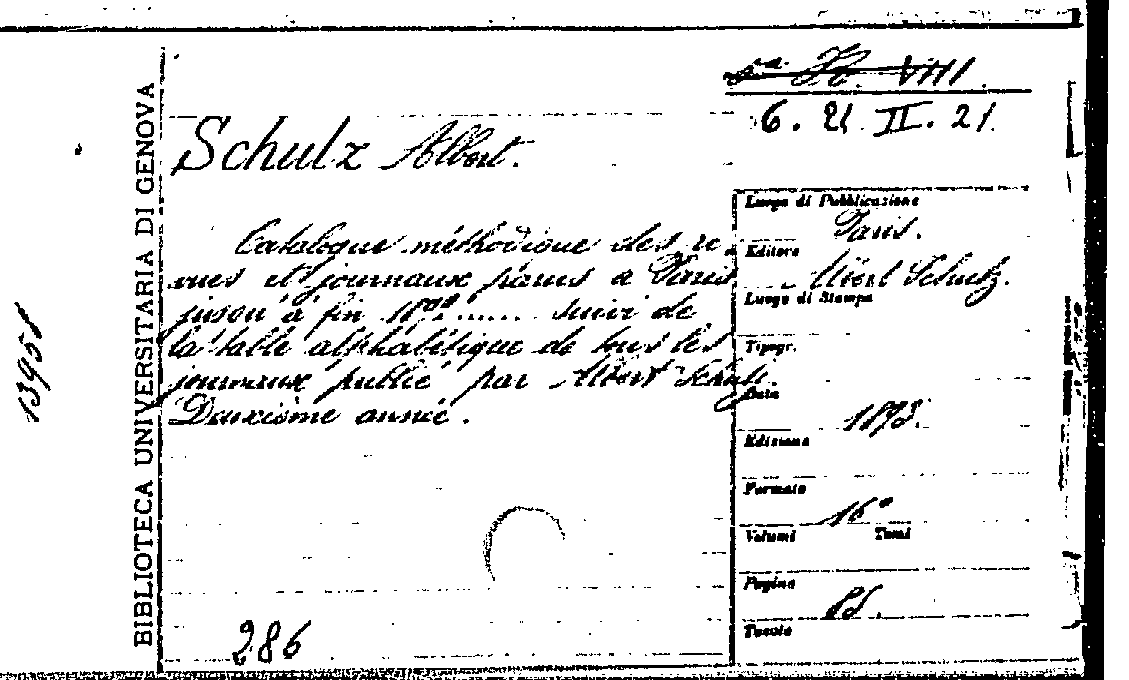 BIBLIOTECA UNIVERSITARIA DI GENOVA
13951
VIII
6. 21 II. 21
Schulz Albert.
Catalogue méthodique des re
vues et journaux parus à Paris
jusqu'à fin ...... suivi de
la table alphabétique de tous les
journaux publié par Albert Schulz.
Deuxième année.
286
Luogo di Pubblicazione
Paris.
Editore
Albert Schulz.
Luogo di Stampa
Tipogr.
Data
1893.
Edizione
Formato
16°
Volumi Tomi
Pagine
Tavole